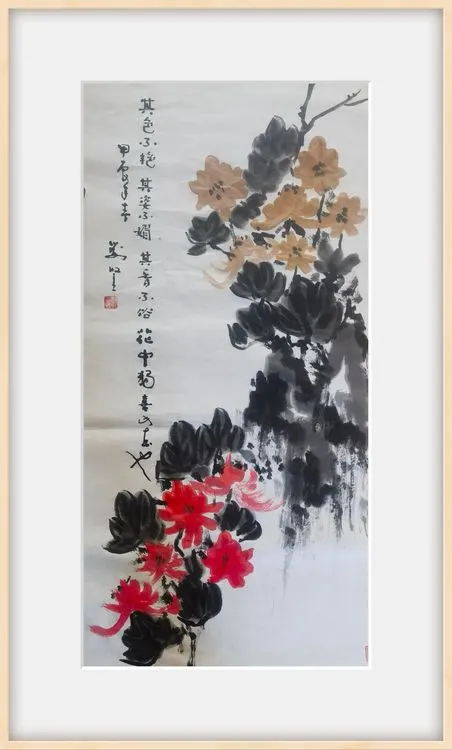 其色不艳 其姿不媚 其香不俗 花中独喜 也
甲辰年春